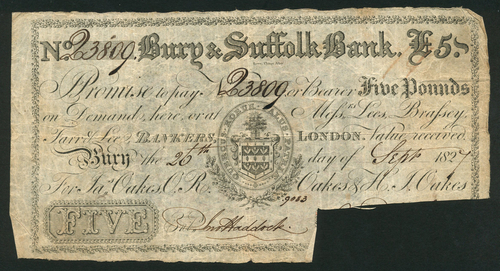 No. 23809. Bury & Suffolk Bank. £5.
I Promise to pay No. 23809. or Bearer Five Pounds
on Demand, here, or at Messrs. Lees, Brassey,
Farr & Lee, BANKERS, LONDON. Value received.
Bury the 26th day of Septr. 1827
For Jas. Oakes, O. R. Oakes & H. J. Oakes
FIVE